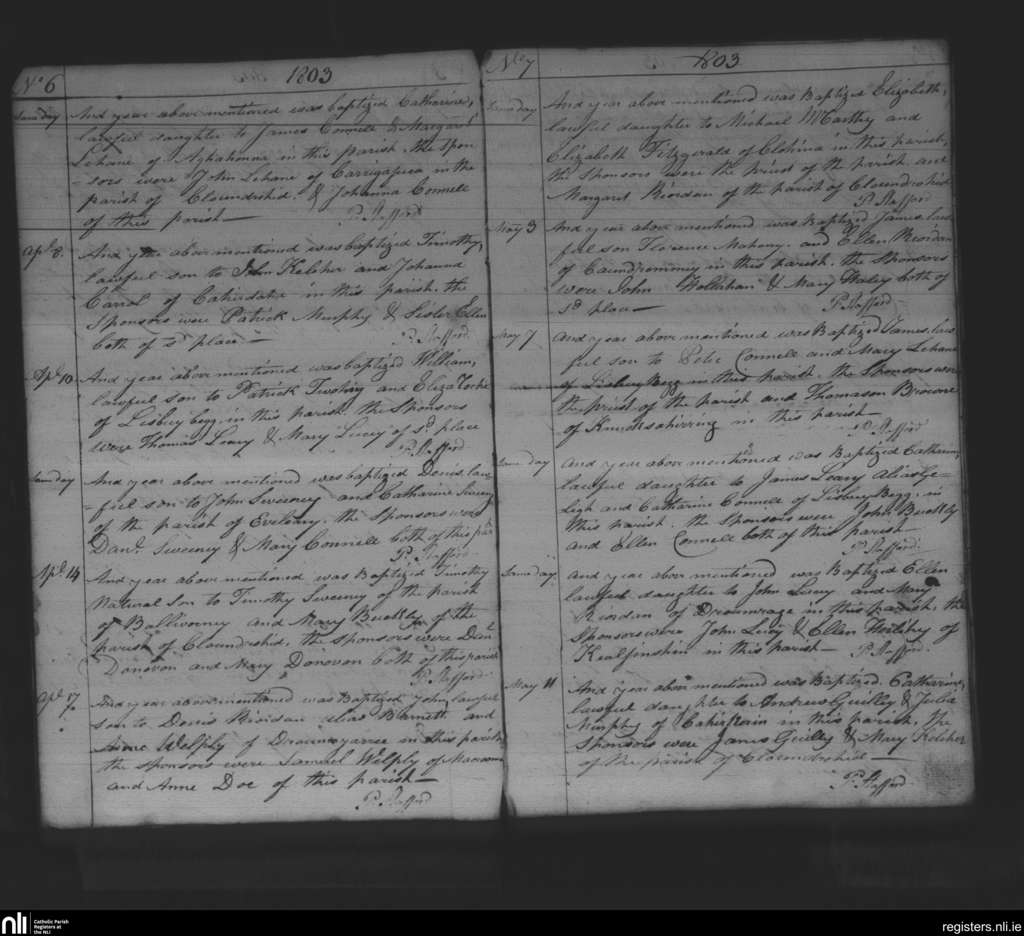 No 6
1803
Same day
And year above mentioned was baptized Catharine,
lawful daughter to James Connell & Margaret
Lehane of Aghahonna in this parish. the Spon
-sors were John Lehane of in the
parish of Cloundrohid. & Johanna Connell
of this parish—
P. Stafford
Apl. 8.
And year above mentioned was baptized Timothy,
lawful son to John Kelcher and Johanna
Carrol of Cahirdaha in this parish. the
Sponsors were Patrick Murphy & Sister Ellen
both of sd place—
P. Stafford
Apl. 10
And year above mentioned was baptized William,
lawful son to Patrick Twohig and Eliza
of Lisbuy begg in this parish. the Sponsors
were Thomas Leary & Mary Lucey of sd place
P. Stafford
Same day
And year above mentioned was baptized Denis, law
-ful son to John Sweeney and Catharine Sweeney
of the parish of Eveleary. the Sponsors were
Danl. Sweeney & Mary Connell both of this
P. Stafford
Apl. 14
And year above mentioned was Baptized Timothy
Natural Son to Timothy Sweeney of the parish
of Ballivorney and Mary Buckley of the
parish of Cloundrohid, the Sponsors were Danl
Donovan and Mary Donovan both of this parish
P. Stafford
Apl. 17.
And year above mentioned was Baptized John, lawful
son to Denis Riordan alias Barnett and
Anne Welply of in this parish
the Sponsors were Samuel Welply of
and Anne Doe of this parish—
P. Stafford
No 7
1803
Same day
And year above mentioned was Baptized Elizabeth,
lawful daughter to Michael McCarthy and
Elizabeth Fitzgerald of Clohina in this parish,
the Sponsors were the priest of the parish and
Margaret Riordan of the parish of Cloundrohid
P. Stafford
May 3
And year above mentioned was Baptized James, law
ful son Florence Mahony. and Ellen Riordan
of in this parish. the Sponsors
were John Hallahan & Mary Healey both of
sd place—
P. Stafford
May 7
And year above mentioned was Baptized James, law
ful son to Peter Connell and Mary Lehane
of Lisbuy Begg in this parish. the Sponsors were
the priest of the parish and Thomason Browne
of in this parish—
P. Stafford
Same day
And year above mentioned was Baptized Catharine,
lawful daughter to James Leary Alias Ge-
Leigh and Catharine Connell of Lisbuy Begg. in
this parish. the Sponsors were John Buckley
and Ellen Connell both of this parish—
P. Stafford
Same day.
And year above mentioned was Baptized Ellen
lawful daughter to John Lucey and Mary
Riordan of in this parish, the
Sponsors were John Lucy & Ellen of
in this parish—
P. Stafford
May 11
And year above mentioned was Baptized Catharine,
lawful daughter to Andrew Quilty & Julia
Murphy of in this parish, the
Sponsors were James Quilty & Mary Kelcher
of the parish of Cloundrohid—
P. Stafford
nli
Catholic Parish
Registers at
the NLI
registers.nli.ie